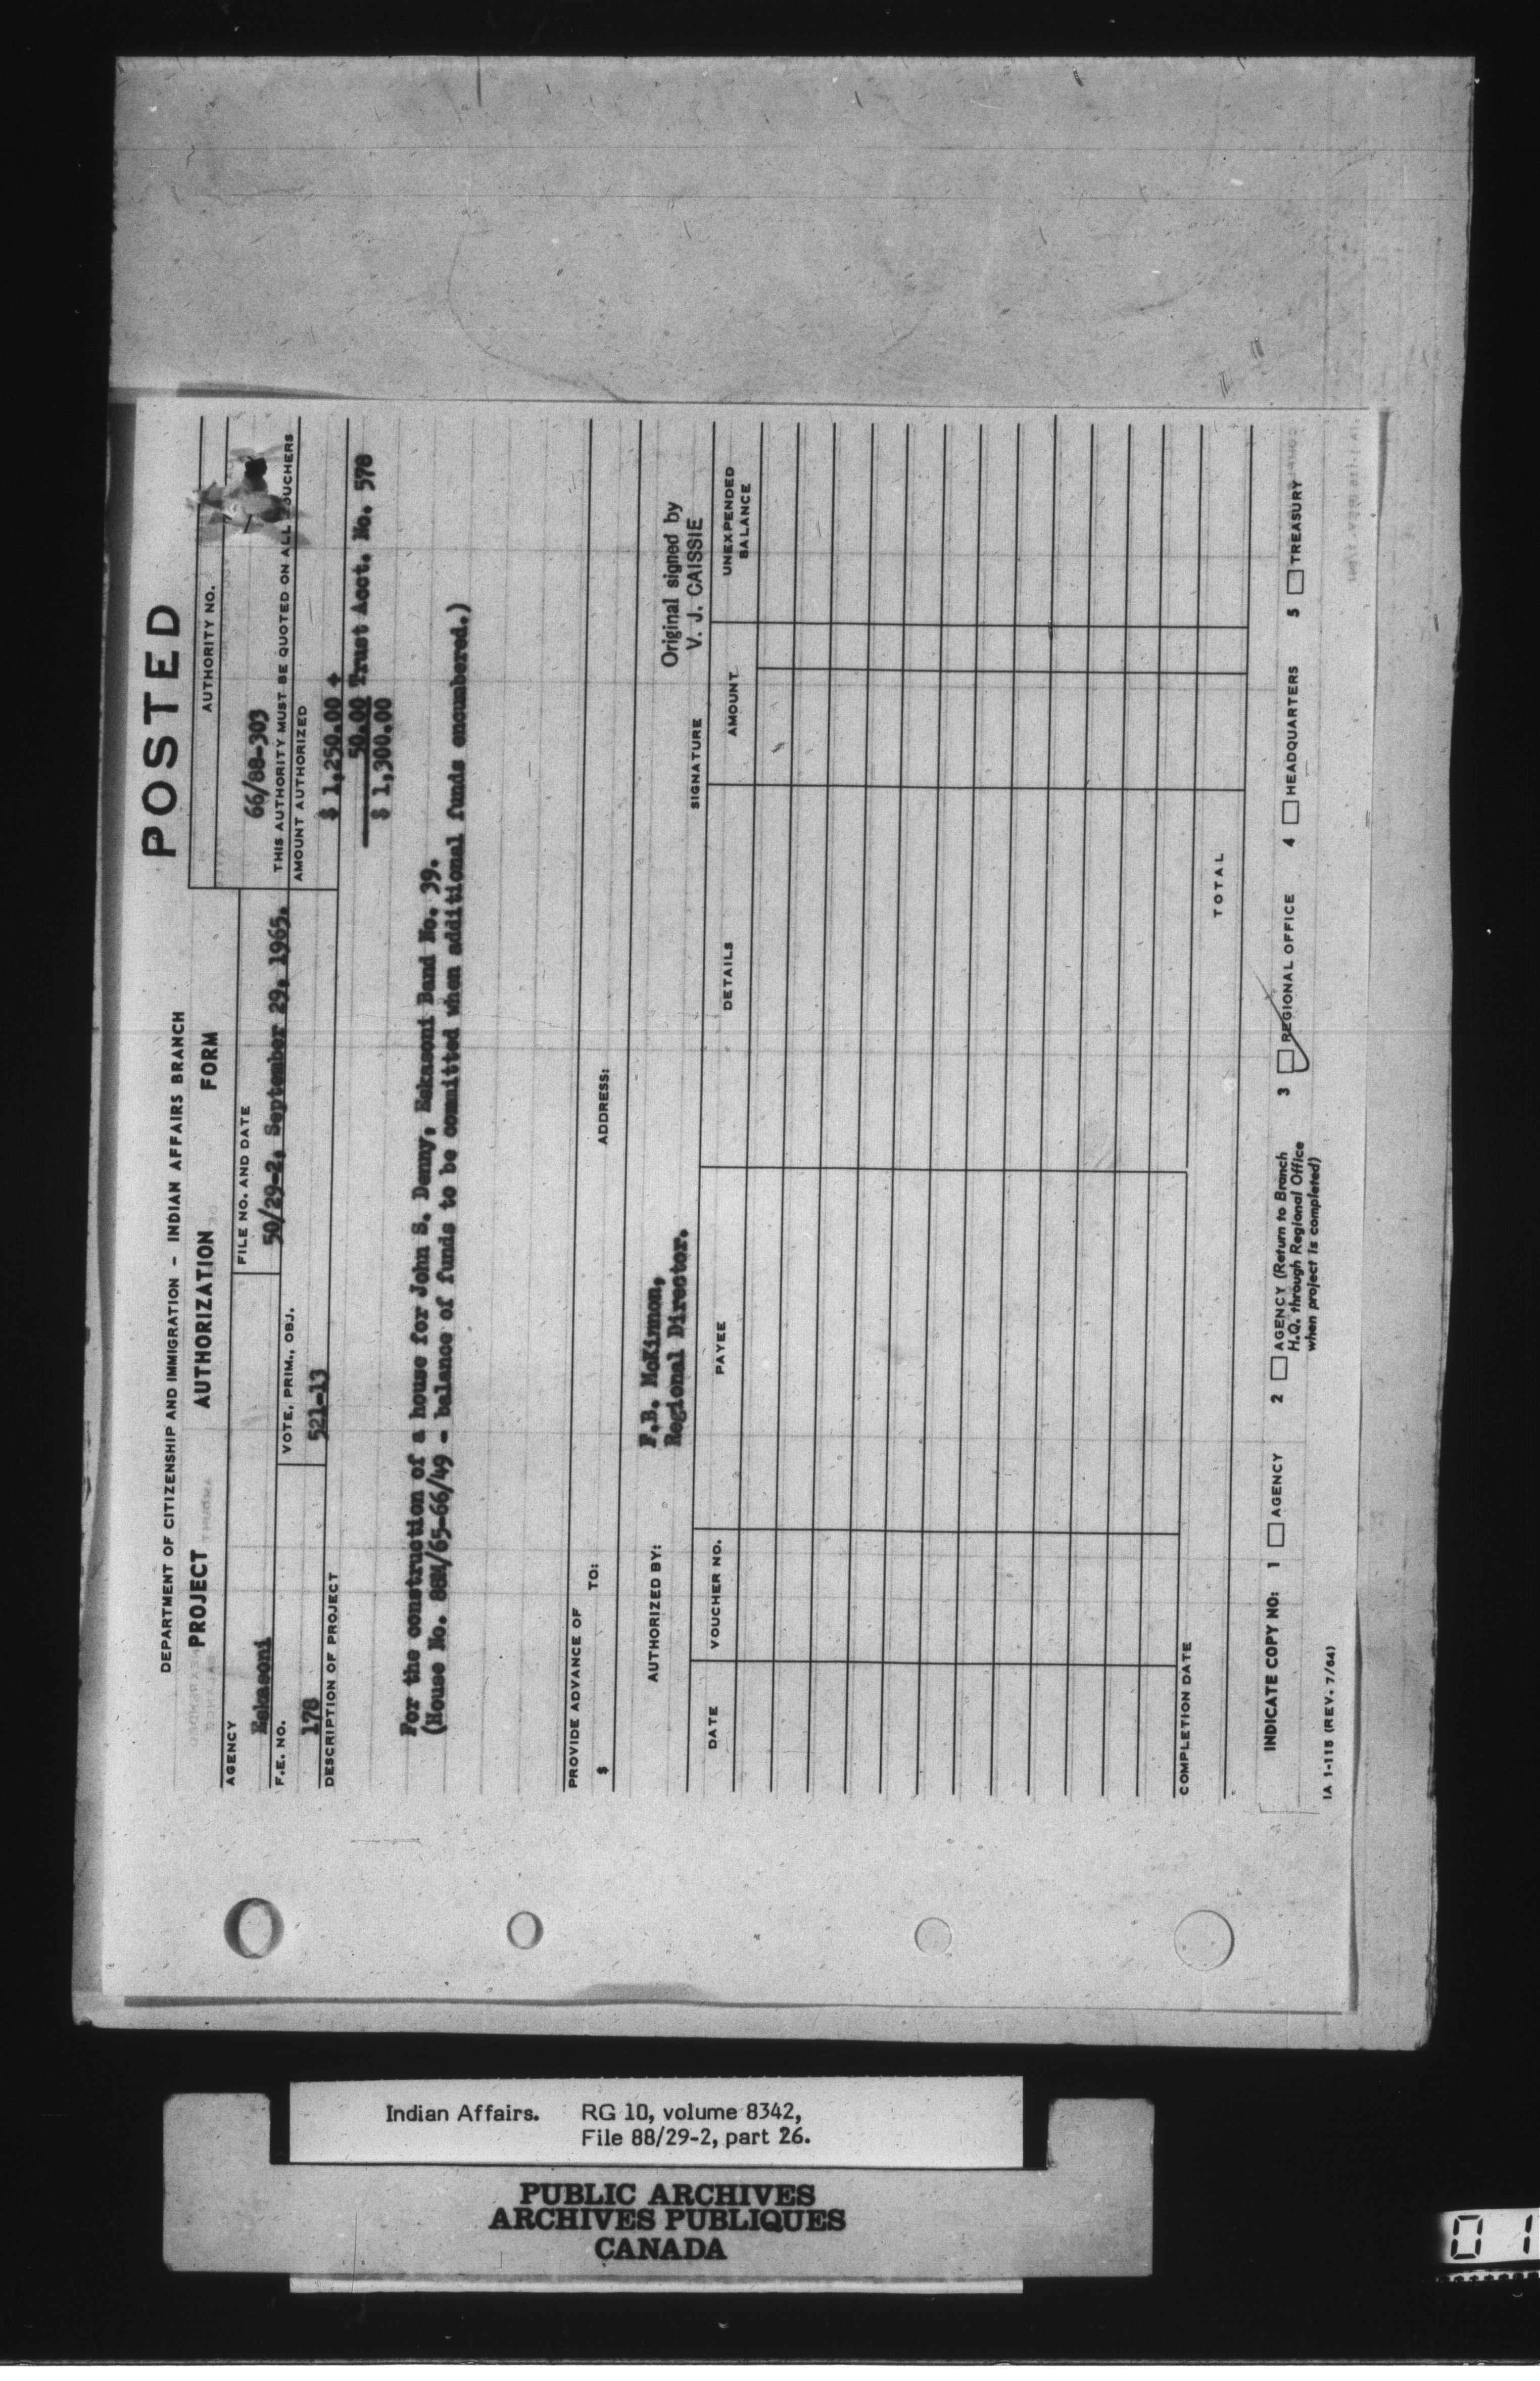 POSTED
DEPARTMENT OF CITIZENSHIP AND IMMIGRATION – INDIAN AFFAIRS BRANCH
PROJECT AUTHORIZATION FORM
AUTHORITY NO.
66/88-303
THIS AUTHORITY MUST BE QUOTED ON ALL VOUCHERS
AGENCY
Eskasoni
FILE NO. AND DATE
50/29-2, September 29, 1965.
F.E. NO.
178
VOTE, PRIM., OBJ.
521-13
AMOUNT AUTHORIZED
$ 1,250.00 +
50.00 Trust Acct. No. 578
$ 1,300.00
DESCRIPTION OF PROJECT
For the construction of a house for John S. Denny, Eskasoni Band No. 39.
(House No. 88M/65-66/49 - balance of funds to be committed when additional funds encumbered.)
PROVIDE ADVANCE OF
$
TO:
ADDRESS:
AUTHORIZED BY:
F.B. McKinnon,
Regional Director.
SIGNATURE
Original signed by
V. J. CAISSIE
DATE VOUCHER NO. PAYEE DETAILS AMOUNT UNEXPENDED BALANCE
COMPLETION DATE
TOTAL
INDICATE COPY NO: 1 AGENCY 2 AGENCY (Return to Branch 3 REGIONAL OFFICE 4 HEADQUARTERS 5 TREASURY
H.Q. through Regional Office
when project is completed)
IA 1-115 (REV. 7/64)
Indian Affairs. RG 10, volume 8342,
File 88/29-2, part 26.
PUBLIC ARCHIVES
ARCHIVES PUBLIQUES
CANADA
01